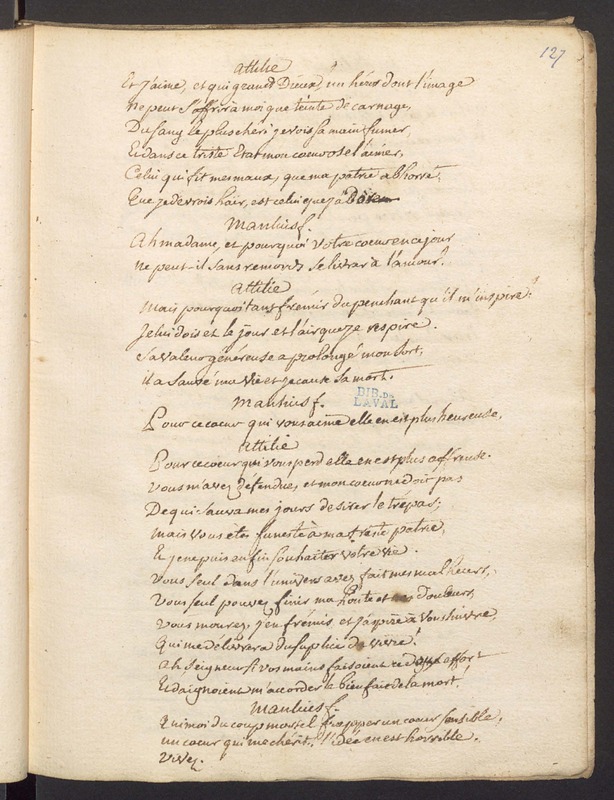 127
attilie
Et j'aime, et qui grands Dieux, un héros dont l'image
ne peut s'offrir à moi que teinte de carnage,
Du sang le plus cheri je vois sa main fumer,
Et dans ce triste Etat mon coeur ose l'aimer,
Celui qui fit mes maux, que ma patrie abhorre,
Que je devrois haïr, est celui que j'a
Manlius f.
Ah madame, et pourquoi votre coeur en ce jour
ne peut-il sans remords se livrer à l'amour?
attilie
Mais pourquoi tant frémir du penchant qu'il m'inspire?
Je lui dois et le jour et l'air que je respire.
Sa valeur généreuse a prolongé mon sort,
il a sauvé ma vie et je cause sa mort.
Manlius f.
BIB. DE
LAVAL
Pour ce coeur qui vous aime elle en est plus heureuse.
attilie
Pour ce coeur qui vous perd elle en est plus affreuse.
vous m'avez défendue, et mon coeur ne doit pas
De qui sauva mes jours desirer le trépas;
mais vous etes funeste à ma triste patrie,
Et je ne puis enfin souhaiter votre vie.
Vous seul dans l'univers avez fait mes malheurs,
Vous seul pouvez finir ma honte et mes douleurs,
Vous mourez, j'en frémis et j'aspire à vous suivre,
Qui me délivrera du suplice de vivre!
ah Seigneur si vos mains faisoient ce effort
Et daignoient m'accorder le bienfait de la mort!
Manlius f.
Qui moi du coup mortel frapper un coeur sensible,
un coeur qui me chérit, l'idée en est horrible.
Vivez.